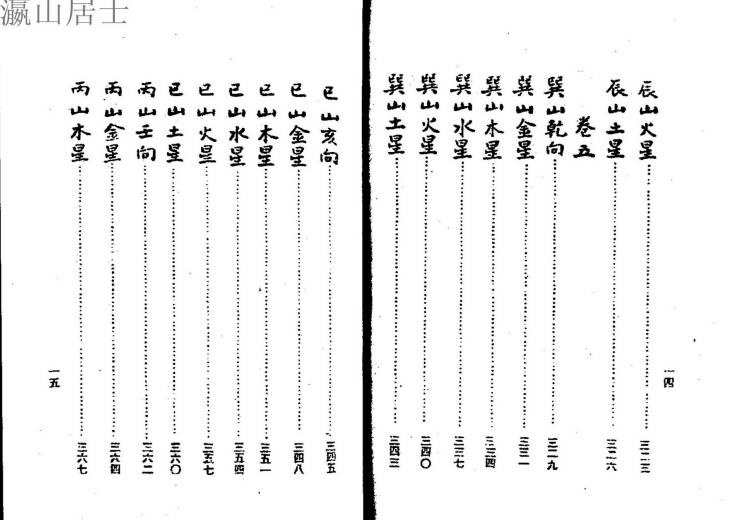 瀛山居士
辰山火星……三二三
辰山土星……三二六
卷五
巽山乾向……三二九
巽山金星……三三一
巽山木星……三三四
巽山水星……三三七
巽山火星……三四〇
巽山土星……三四三
一四
巳山亥向……三四五
巳山金星……三四八
巳山木星……三五一
巳山水星……三五四
巳山火星……三五七
巳山土星……三六〇
丙山壬向……三六二
丙山金星……三六四
丙山木星……三六七
一五